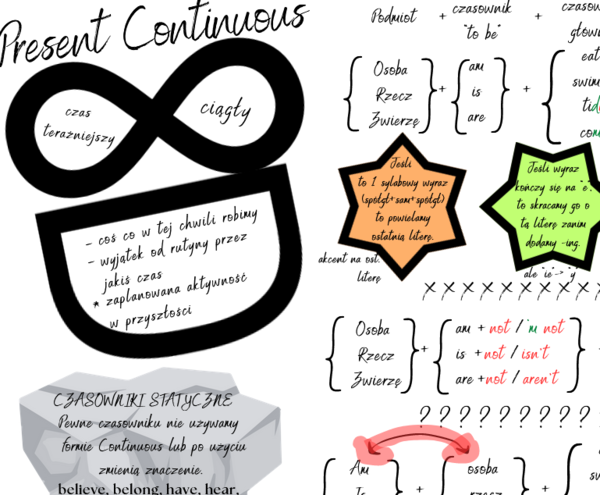 Present Continuous
czas
teraźniejszy
ciągły
- coś co w tej chwili robimy
- wyjątek od rutyny przez
jakiś czas
* zaplanowana aktywność
w przyszłości
CZASOWNIKI STATYCZNE
Pewne czasowniku nie używamy
formie Continuous lub po użyciu
zmienią znaczenie.
believe, belong, have, hear,
Podmiot + czasownik +
"to be"
Osoba
Rzecz
Zwierzę
+
am
is
are
+
eat
swim
tid
com
Jeśli
to 1 sylabowy wyraz
(spółgł+sam+spółgł)
to powielamy
ostatnią literę.
akcent na ost.
literę
Jeśli wyraz
kończy się na "e".
to skracamy go o
tą literę zanim
dodamy -ing.
ale "ie"->"y"
x x x x x x x x x x
Osoba
Rzecz
Zwierzę
+
am + not / 'm not
is + not / isn't
are + not / aren't
? ? ? ? ? ? ? ? ? ?
Am
Is
+
osoba
rzecz
+